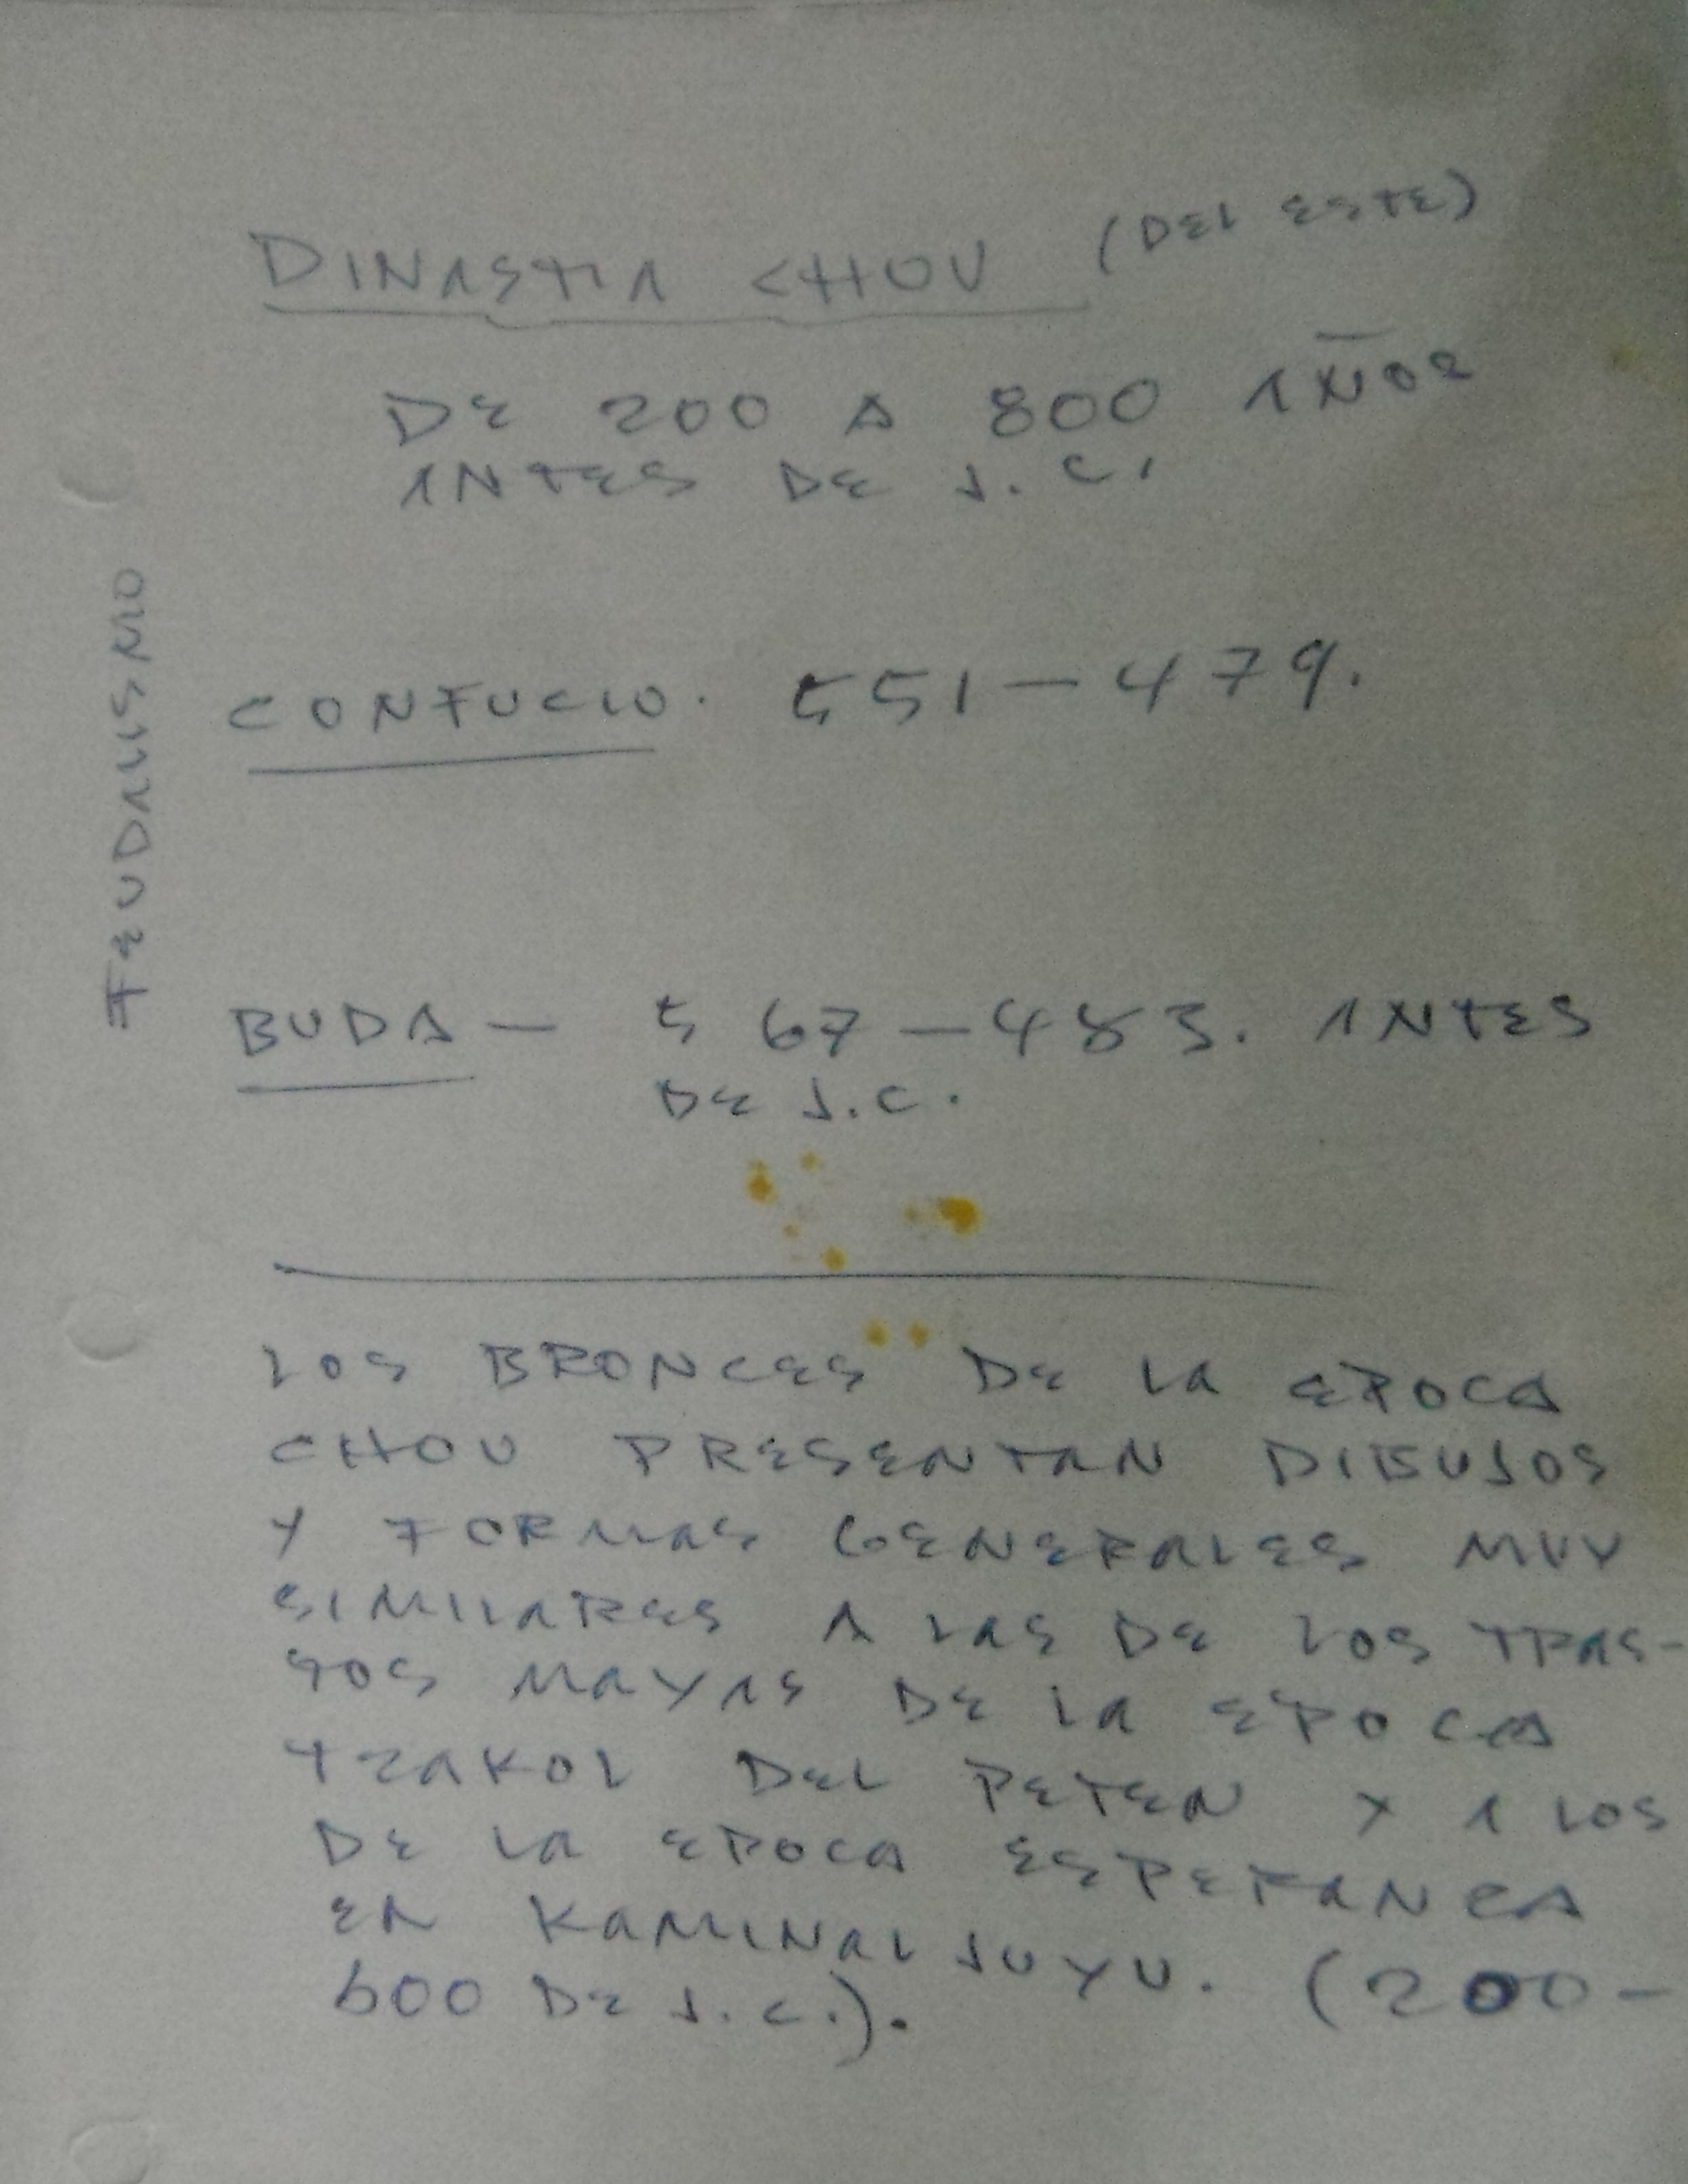 DINASTIA CHOU (DEL ESTE)
DE 200 A 800 AÑOS
ANTES DE J.C.
FEUDALISMO
CONFUCIO. 551-479.
BUDA - 567-483. ANTES
DE J.C.
LOS BRONCES DE LA EPOCA
CHOU PRESENTAN DIBUJOS
Y FORMAS GENERALES MUY
SIMILARES A LAS DE LOS TRAS-
SOS MAYAS DE LA EPOCA
TZAKOL DEL PETEN Y A LOS
DE LA EPOCA ESPERANZA
EN KAMINAL JUYU. (200-
600 DE J.C.).